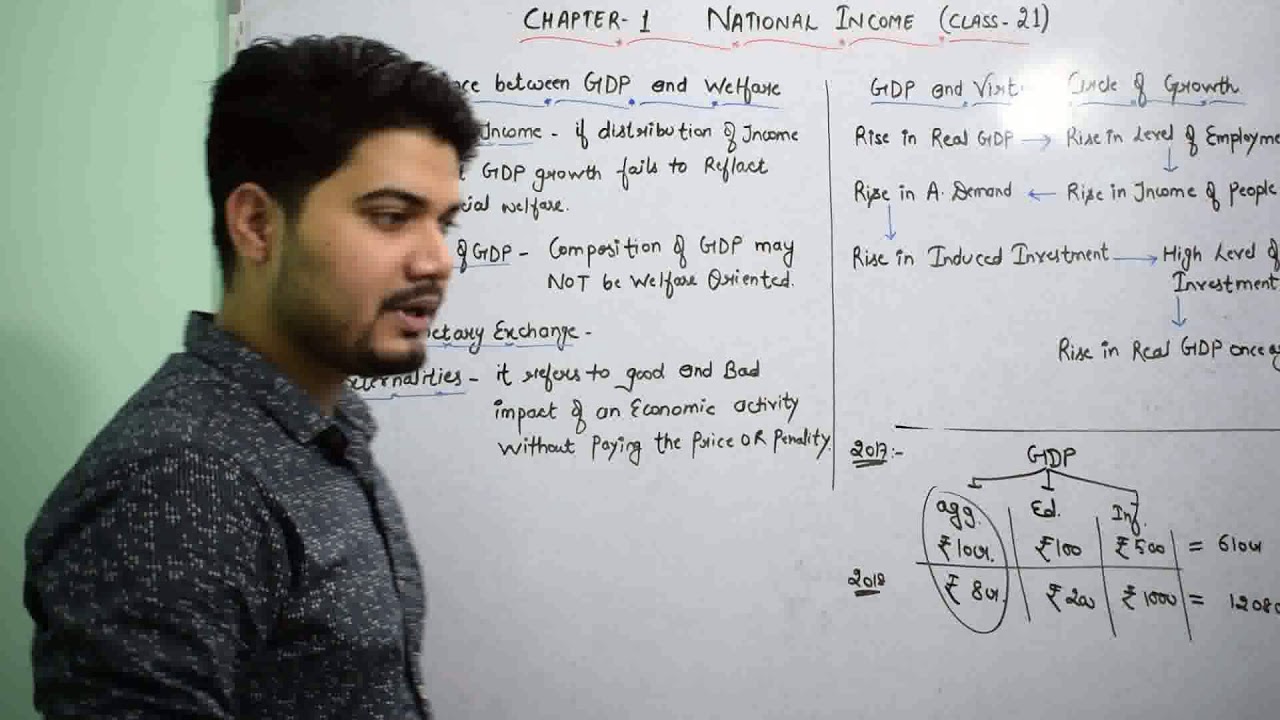 CHAPTER-1 NATIONAL INCOME (CLASS-21)
between GDP and Welfare
Income - if distribution of Income
GDP growth fails to Reflect
welfare.
of GDP - Composition of GDP may
NOT be Welfare Oriented.
etary Exchange -
ternalities - it refers to good and Bad
impact of an Economic activity
without Paying the Price OR Penality.
GDP and Virt Circle of Growth
Rise in Real GDP → Rise in Level of Employme
Rise in A. Demand ← Rise in Income of People
Rise in Induced Investment → High Level of
Investment
Rise in Real GDP once ag
2017:- GDP
agg. Ed. Inf.
₹100 ₹500
2018 ₹1000 =